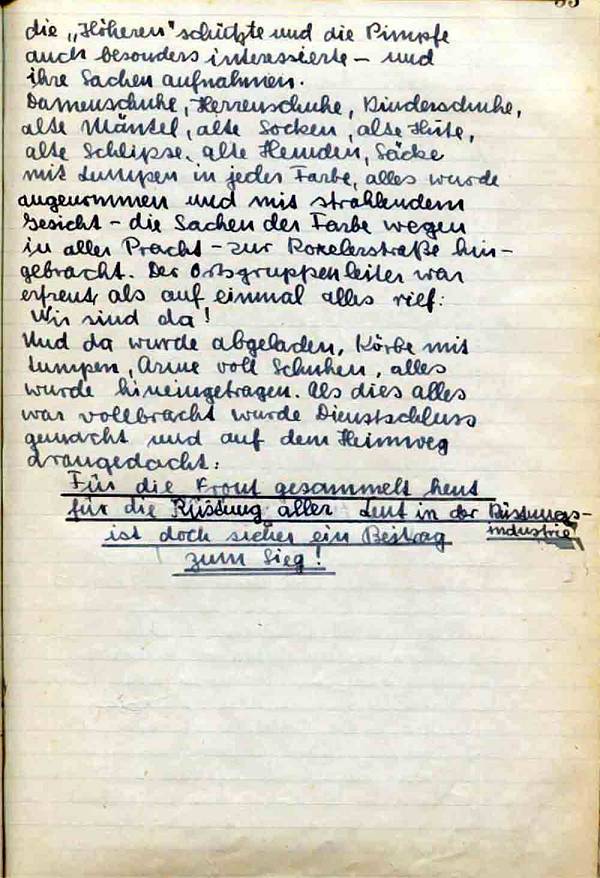 55
die „Höheren" schützte und die Pimpfe
auch besonders interessierte – und
ihre Sachen aufnahmen.
Damenschuhe, Herrenschuhe, Kinderschuhe,
alte Mäntel, alte Socken, alte Hüte,
alte Schlipse, alte Hemden, Säcke
mit Lumpen in jeder Farbe, alles wurde
angenommen und mit strahlendem
Gesicht – die Sachen der Farbe wegen
in aller Pracht – zur Roxelerstraße hin-
gebracht. Der Ortsgruppenleiter war
erfreut, als auf einmal alles rief:
Wir sind da!
Und da wurde abgeladen, Körbe mit
Lumpen, Arme voll Schuhen, alles
wurde hineingetragen. Als dies alles
war vollbracht wurde Dienstschluss
gemacht und auf dem Heimweg
drangedacht:
Für die Front gesammelt heut
für die Rüstung aller Leut in der Rüstungs-
industrie
ist doch sicher ein Beitrag
zum Sieg!